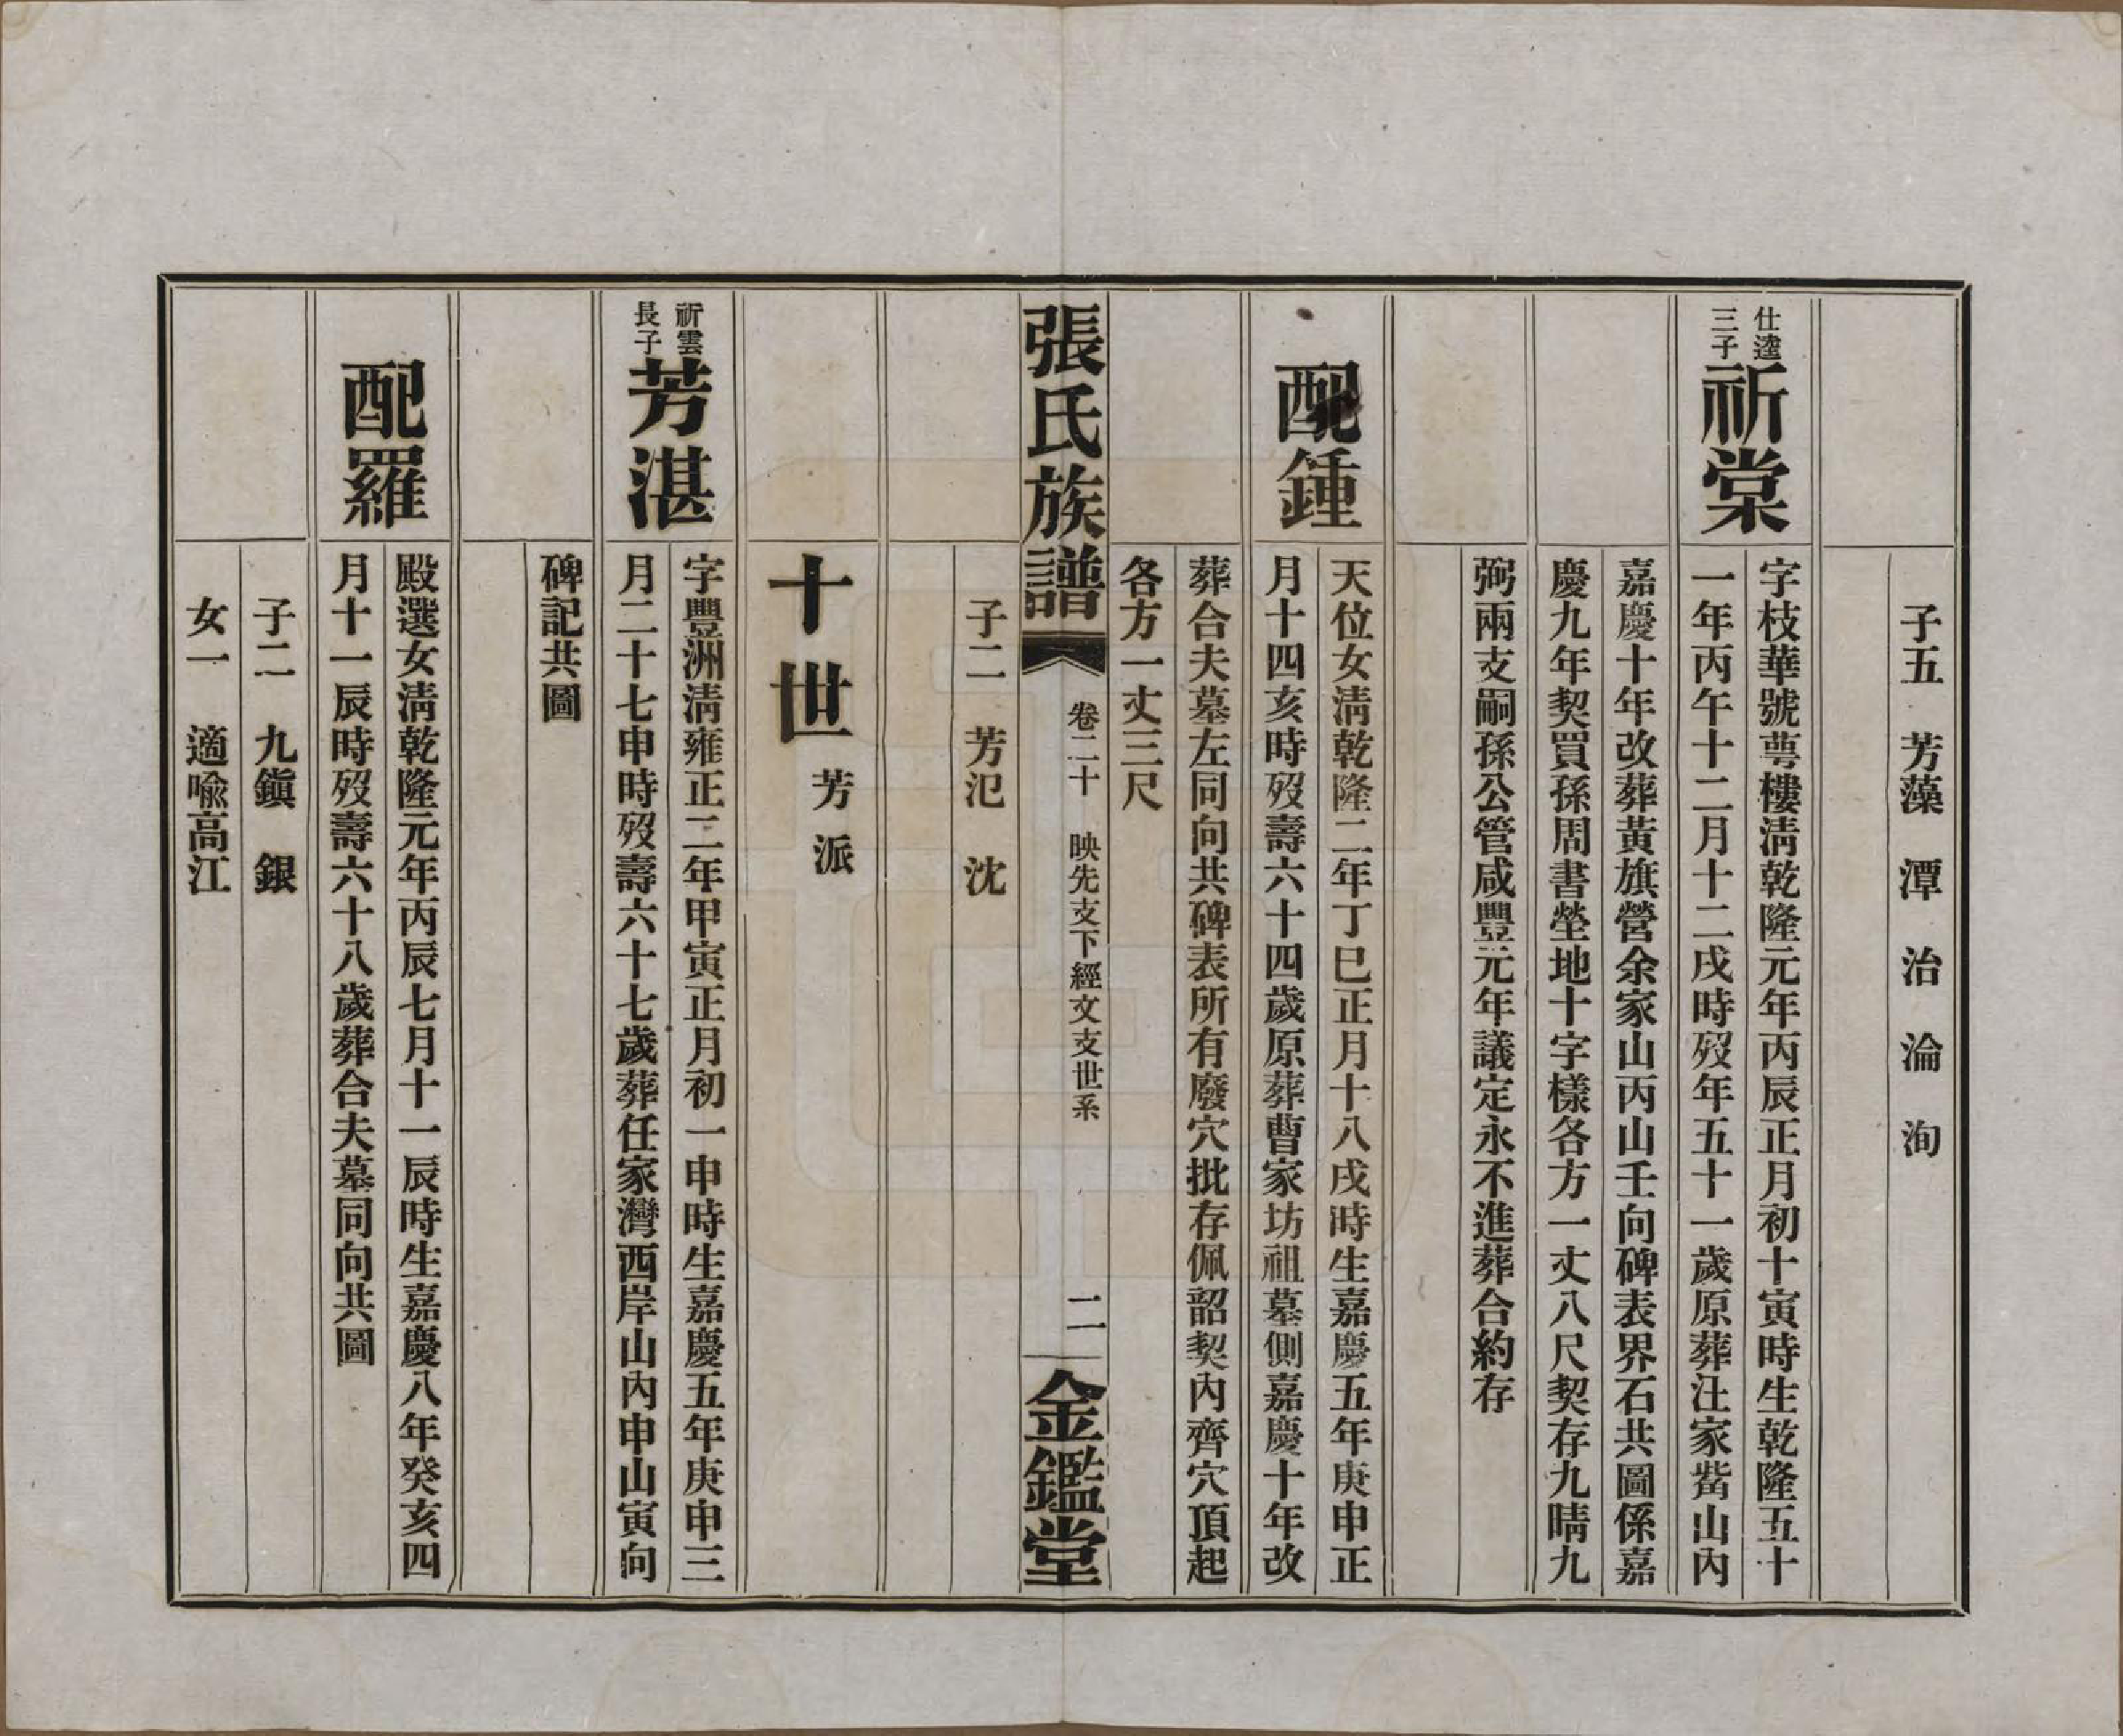 子五 芳藻 潭 治 淪 洵
仕逵
三子
祈棠
字枝華號萼樓淸乾隆元年丙辰正月初十寅時生乾隆五十
一年丙午十二月十二戌時歿年五十一歲原葬汪家嘴山內
嘉慶十年改葬黃旗營余家山丙山壬向碑表界石共圖係嘉
慶九年契買孫周書塋地十字樣各方一丈八尺契存九晴九
弼兩支嗣孫公管咸豐元年議定永不進葬合約存
配鍾
天位女淸乾隆二年丁巳正月十八戌時生嘉慶五年庚申正
月十四亥時歿壽六十四歲原葬曹家坊祖墓側嘉慶十年改
葬合夫墓左同向共碑表所有廢穴批存佩韶契內齊穴頂起
各方一丈三尺
張氏族譜
卷二十 映先支下經文支世系
二
金鑑堂
子二 芳氾 沈
十世 芳派
祈雲
長子
芳湛
字豐洲淸雍正二年甲寅正月初一申時生嘉慶五年庚申三
月二十七申時歿壽六十七歲葬任家灣西岸山內申山寅向
碑記共圖
配羅
殿選女淸乾隆元年丙辰七月十一辰時生嘉慶八年癸亥四
月十一辰時歿壽六十八歲葬合夫墓同向共圖
子二 九鎭 銀
女一 適喩高江